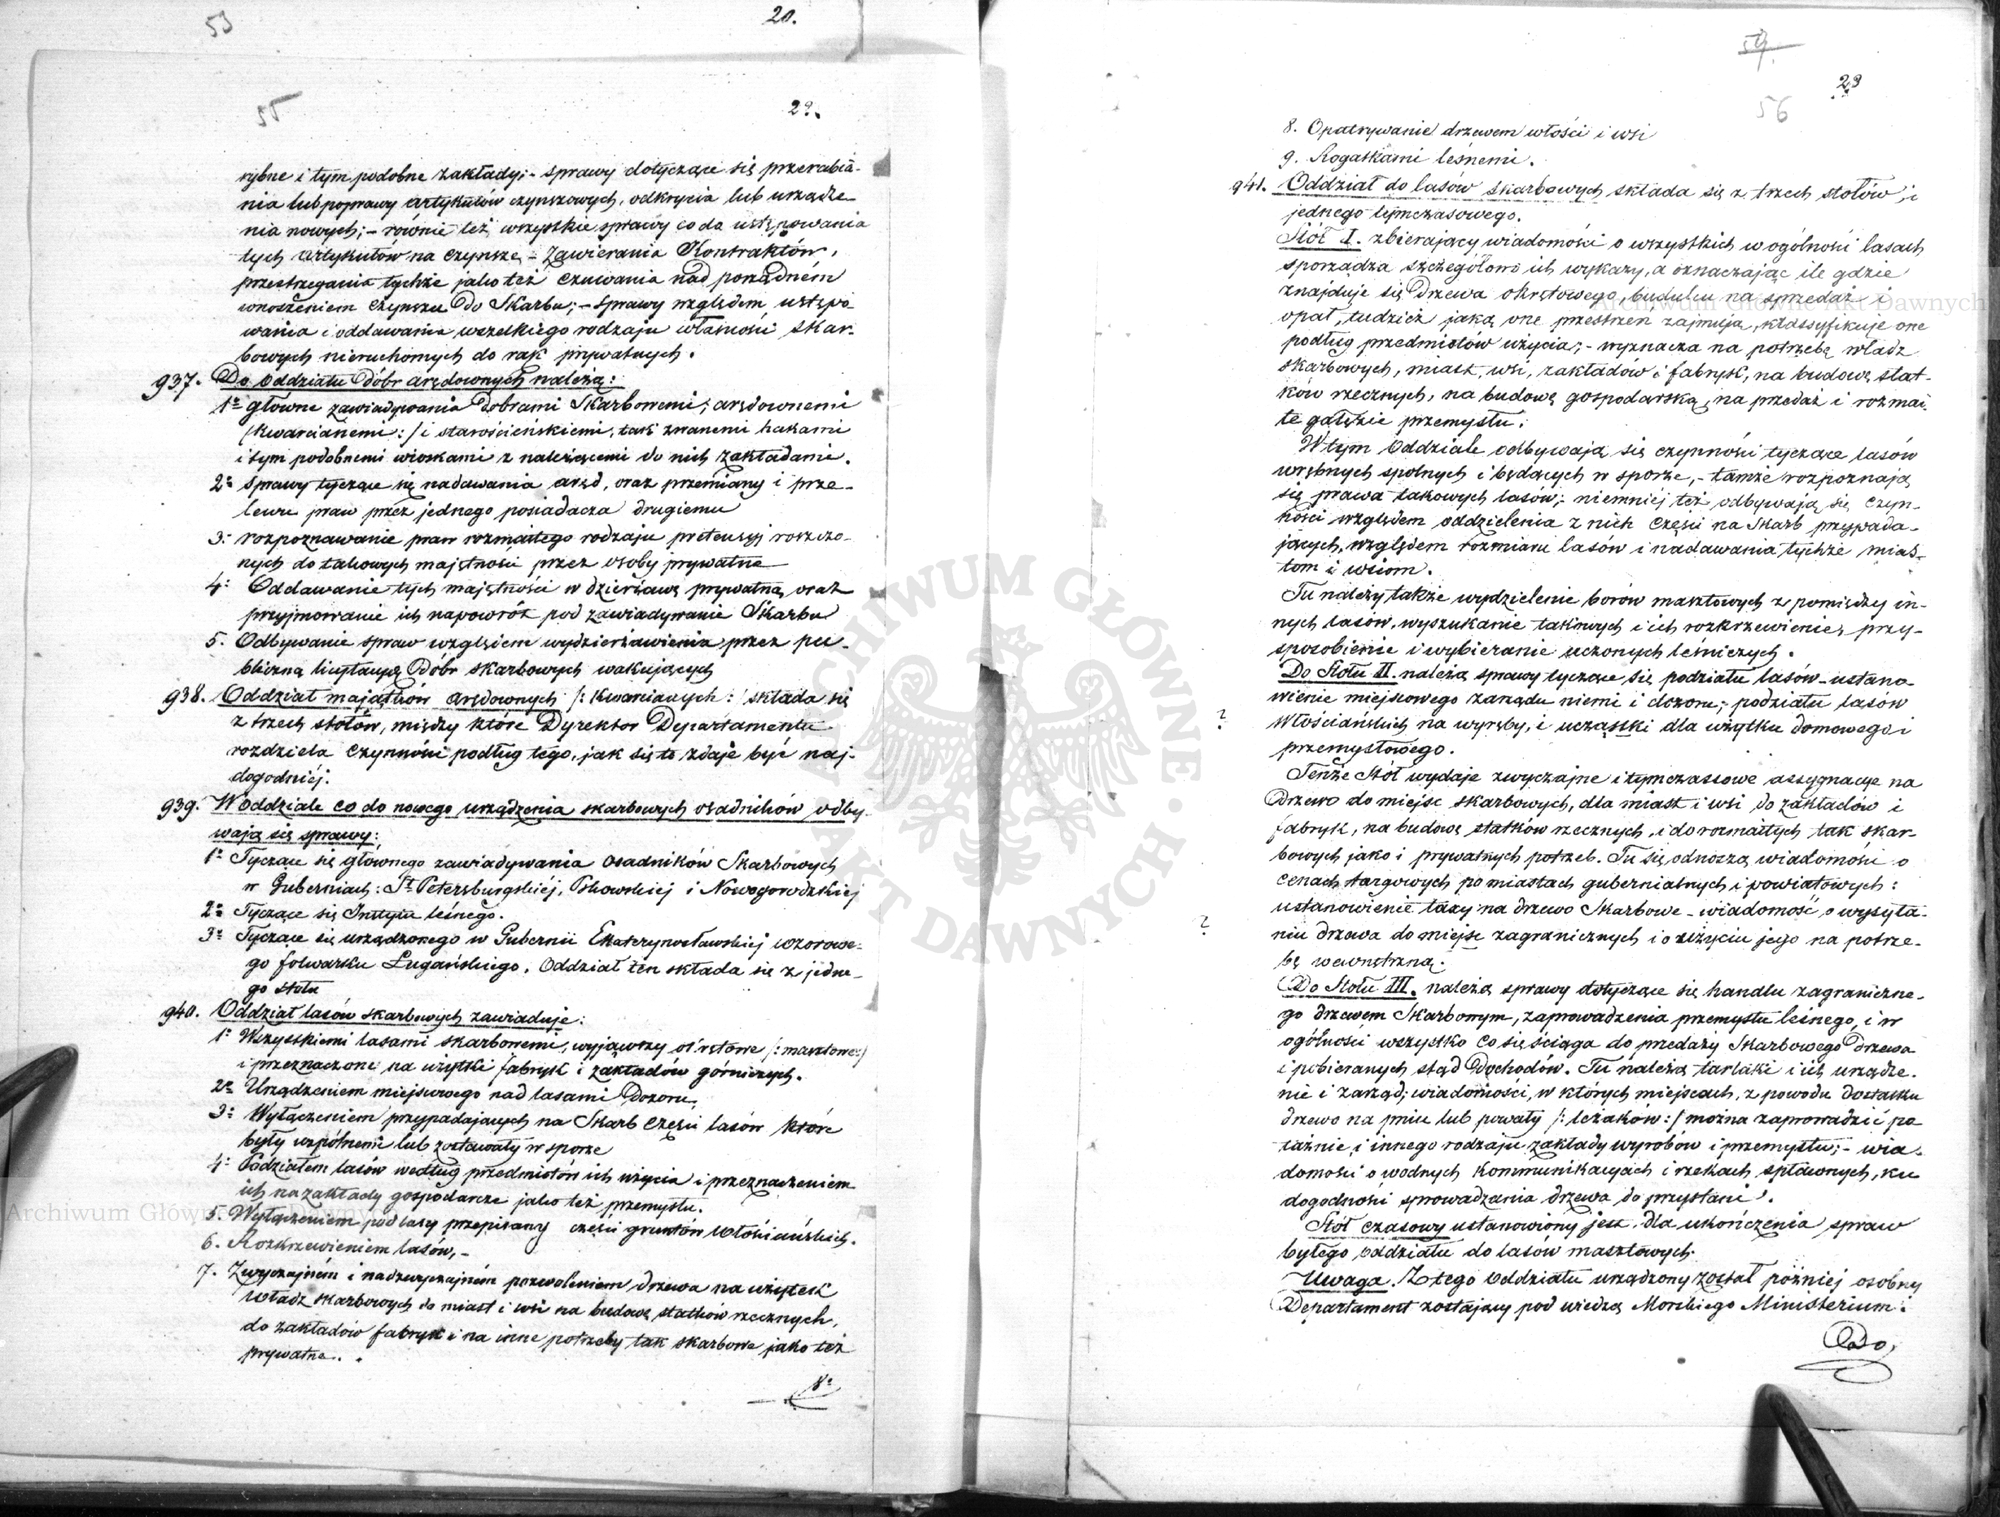 53
20.
55
22.
rybne i tym podobne zakłady; - sprawy dotyczące się przerabia-
nia lub poprawy artykułów czynszowych, odkrycia lub urządze-
nia nowych; - równie też wszystkie sprawy co do ustępowania
tych artykułów na czynsze - zawierania Kontraktów,
przestrzegania tychże jako też czuwania nad porządném
wnoszeniem czynszu do Skarbu; - sprawy względem ustępo-
wania i oddawania wszelkiego rodzaju własności Skar-
bowych nieruchomych do rąk prywatnych.
937. Do Oddziału Dóbr arędownych należą:
1º główne zawiadywania Dobrami Skarbowemi, arędownemi
/:kwarcianemi:/ i starościeńskiemi, tak zwanemi hakami
i tym podobnemi wioskami z należącemi do nich zakładami.
2º sprawy tyczące się nadawania aręd, oraz przemiany i prze-
lewu praw przez jednego posiadacza drugiemu
3º rozpoznawanie praw rozmaitego rodzaju pretensyj roszczo-
nych do takowych majętności przez osoby prywatne
4º Oddawanie tych majętności w dzierżawę prywatną oraz
przyjmowanie ich napowrót pod zawiadywanie Skarbu
5. Odbywanie spraw względem wydzierżawienia przez pu-
bliczną licytacyę Dóbr skarbowych wakujących
938. Oddział majątków arędownych /: kwarciacych :/ składa się
z trzech stołów, między które Dyrektor Departamentu
rozdziela czynności podług tego, jak się to zdaje być naj-
dogodniéj.
939. W oddziale co do nowego urządzenia skarbowych osadników odby-
wają się sprawy:
1º Tyczące się głównego zawiadywania osadników Skarbowych
w Guberniach: St Petersburgskiéj, Pskowskiej i Nowogorodzkiej
2º Tyczące się Instytu leśnego.
3º Tyczące się urządzonego w Gubernii Ekaterynosławskiej wzorowe-
go folwarku Ługańskiego. Oddział ten składa się z jedne-
go stołu
940. Oddział lasów skarbowych zawiaduje:
1º Wszystkiemi lasami skarbowemi, wyjąwszy okrętowe /: masztowe:/
i przeznaczone na użytki fabryk i zakładów górniczych.
2º Urządzeniem miejscowego nad lasami Dozoru,
3º Wyłączeniem przypadających na Skarb części lasów które
były wspólnemi lub zostawały w sporze
4º Podziałem lasów według przedmiotów ich użycia i przeznaczeniem
ich na zakłady gospodarcze jako też przemysłu.
5. Wyłączeniem pod lasy przepisany części gruntów Włościańskich.
6. Rozkrzewieniem lasów, -
7. Zwyczajném i nadzwyczajném pozwoleniem drzewa na użytek
władz skarbowych do miast i wsi na budowę statków rzecznych,
do zakładów fabryk i na inne potrzeby tak skarbowe jako też
prywatne.
8º
54.
23
56
8. Opatrywanie drzewem włości i wsi
9. Rogatkami leśnemi.
941. Oddział do lasów skarbowych składa się z trzech stołów i
jednego tymczasowego.
Stół I. zbierający wiadomości o wszystkich w ogólności lasach
sporządza szczegółowe ich wykazy, a oznaczając ile gdzie
znajduje się drzewa okrętowego, budulcu na sprzedaż i
opał, tudzież jaką one przestrzeń zajmują, klassyfikuje one
podług przedmiotów użycia; - wyznacza na potrzebę władz
skarbowych, miast, wsi, zakładów i fabryk, na budowę stat-
ków rzecznych, na budowę gospodarską, na przedaż i rozmai-
te gałęzie przemysłu.
W tym Oddziale odbywają się czynności tyczące lasów
wrębnych spolnych i będących w sporze, - tamże rozpoznają
się prawa takowych lasów; niemniej też odbywają się czyn-
ności względem oddzielenia z nich części na Skarb przypada-
jących, względem rozmiaru lasów i nadawania tychże mias-
tom i wsiom.
Tu należy także wydzielenie borów masztowych z pomiędzy in-
nych lasów, wyszukanie takowych i ich rozkrzewienie, przy-
sposobienie i wybieranie uczonych leśniczych.
Do Stołu II. należą sprawy tyczące się podziału lasów - ustano-
wienie miejscowego zarządu niemi i dozoru; podziału lasów
? Włościańskich na wyręby, i ucząstki dla użytku domowego i
przemysłowego.
Tenże Stół wydaje zwyczajne i tymczasowe assygnacye na
Drzewo do miejsc skarbowych, dla miast i wsi do zakładów i
fabryk, na budowę statków rzecznych, i do rozmaitych tak skar-
bowych jako i prywatnych potrzeb. Tu się odnoszą wiadomości o
cenach targowych po miastach gubernialnych i powiatowych:
? ustanowienie taxy na drzewo Skarbowe - wiadomość o wysyła-
niu drzewa do miejsc zagranicznych i o zużyciu jego na potrze-
bę wewnętrzną.
Do Stołu III. należą sprawy dotyczące się handlu zagraniczne-
go drzewem Skarbowym, zaprowadzenia przemysłu leśnego, i w
ogólności wszystko co się ściąga do przedaży Skarbowego Drzewa
i pobieranych stąd Dochodów. Tu należą tartaki i ich urządze-
nie i zarząd; wiadomości, w których miejscach, z powodu dostatku
drzewo na pniu lub powały /: leżaków:/ można zaprowadzić po-
tażnie i innego rodzaju zakłady wyrobów i przemysłu; - wia-
domości o wodnych kommunikacyach i rzekach spławnych, ku
dogodności sprowadzania drzewa do przystani.
Stół czasowy ustanowiony jest dla ukończenia spraw
byłego oddziału do lasów masztowych.
Uwaga. Z tego oddziału urządzony został później osobny
Departament zostający pod wiedzą Morskiego Ministerium.
ARCHIWUM GŁÓWNE AKT DAWNYCH
Archiwum Główne Akt Dawnych
Archiwum Główne Akt Dawnych